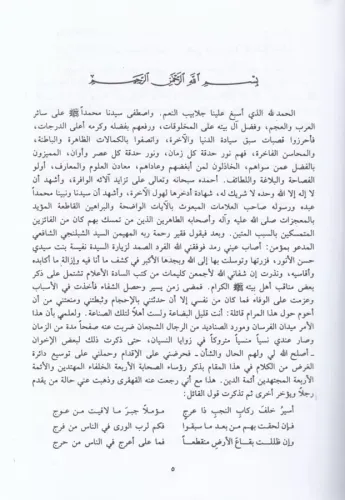 بسم الله الرحمن الرحيم
الحمد لله الذي أسبغ علينا جلابيب النعم. واصطفى سيدنا محمداً ﷺ على سائر
العرب والعجم، وفضل آل بيته على المخلوقات، ورفعهم بفضله وكرمه أعلى الدرجات،
فأحرزوا قصبات سبق سيادة الدنيا والآخرة، واتصفوا بالكمالات الظاهرة والباطنة،
والمحاسن الفاخرة، فهم نور حدقة كل زمان، ونور حدقة كل عصر وأوان، المميزون
بالفضل ممن سواهم، الخاذلون لمن أبغضهم وعاداهم، معادن العلوم والمعارف، أولو
الفصاحة والبلاغة واللطائف. أحمده سبحانه وتعالى على تزايد آلائه الوافرة، وأشهد أن
لا إله إلا الله وحده لا شريك له، شهادة أدخرها لهول الآخرة، وأشهد أن سيدنا ونبينا محمداً
عبده ورسوله صاحب العلامات المبعوث بالآيات الواضحة والبراهين القاطعة المؤيد
بالمعجزات صلى الله عليه وآله وأصحابه الطاهرين الذين من تمسك بهم كان من الفائزين
المتمسكين بالسبب المتين. وبعد فيقول فقير رحمة ربه المهيمن السيد الشبلنجي الشافعي
المدعو بمؤمن: أصاب عيني رمد فوفقني الله الفرد الصمد لزيارة السيدة نفيسة بنت سيدي
حسن الأنور، فزرتها وتوسلت بها إلى الله وبجدها الأكبر في كشف ما أنا فيه وإزالة ما أكابده
وأقاسيه، ونذرت إن شفاني الله لأجمعن كليمات من كتب السادة الأعلام تشتمل على ذكر
بعض مناقب أهل بيته ﷺ الكرام. فمضى زمن يسير وحصل الشفاء فأخذت في الأسباب
وعزمت على الوفاء فما كان من نفسي إلا أن حدثتني بالإحجام وثبطتني ومنعتني من أن
أحوم حول هذا المرام قائلة: أنت قليل البضاعة ولست أهلاً لتلك الصناعة. ولعلمي بأن هذا
الأمر ميدان الفرسان ومورد الصناديد من الرجال الشجعان ضربت عنه صفحاً مدة من الزمان
وصار عندي نسياً منسياً متروكاً في زوايا النسيان، حتى ذكرت ذلك لبعض الإخوان
- أصلح الله لي ولهم الحال والشأن - فحرضني على الإقدام وحملني على توسيع دائرة
الغرض من الكلام في هذا المقام بذكر رؤساء الصحابة الأربعة الخلفاء المهتدين والأئمة
الأربعة المجتهدين أئمة الدين. هذا مع أني رجعت عنه القهقرى وذهبت عني حالة من يقدم
رجلاً ويؤخر أخرى ثم تذكرت قول القائل:
أسير خلف ركاب النجب ذا عرج مؤملاً جبر ما لاقيت من عوج
فإن لحقت بهم من بعد ما سبقوا فكم لرب الورى في الناس من فرج
وإن ظللت بقاع الأرض منقطعاً فما على أعرج في الناس من حرج
٥